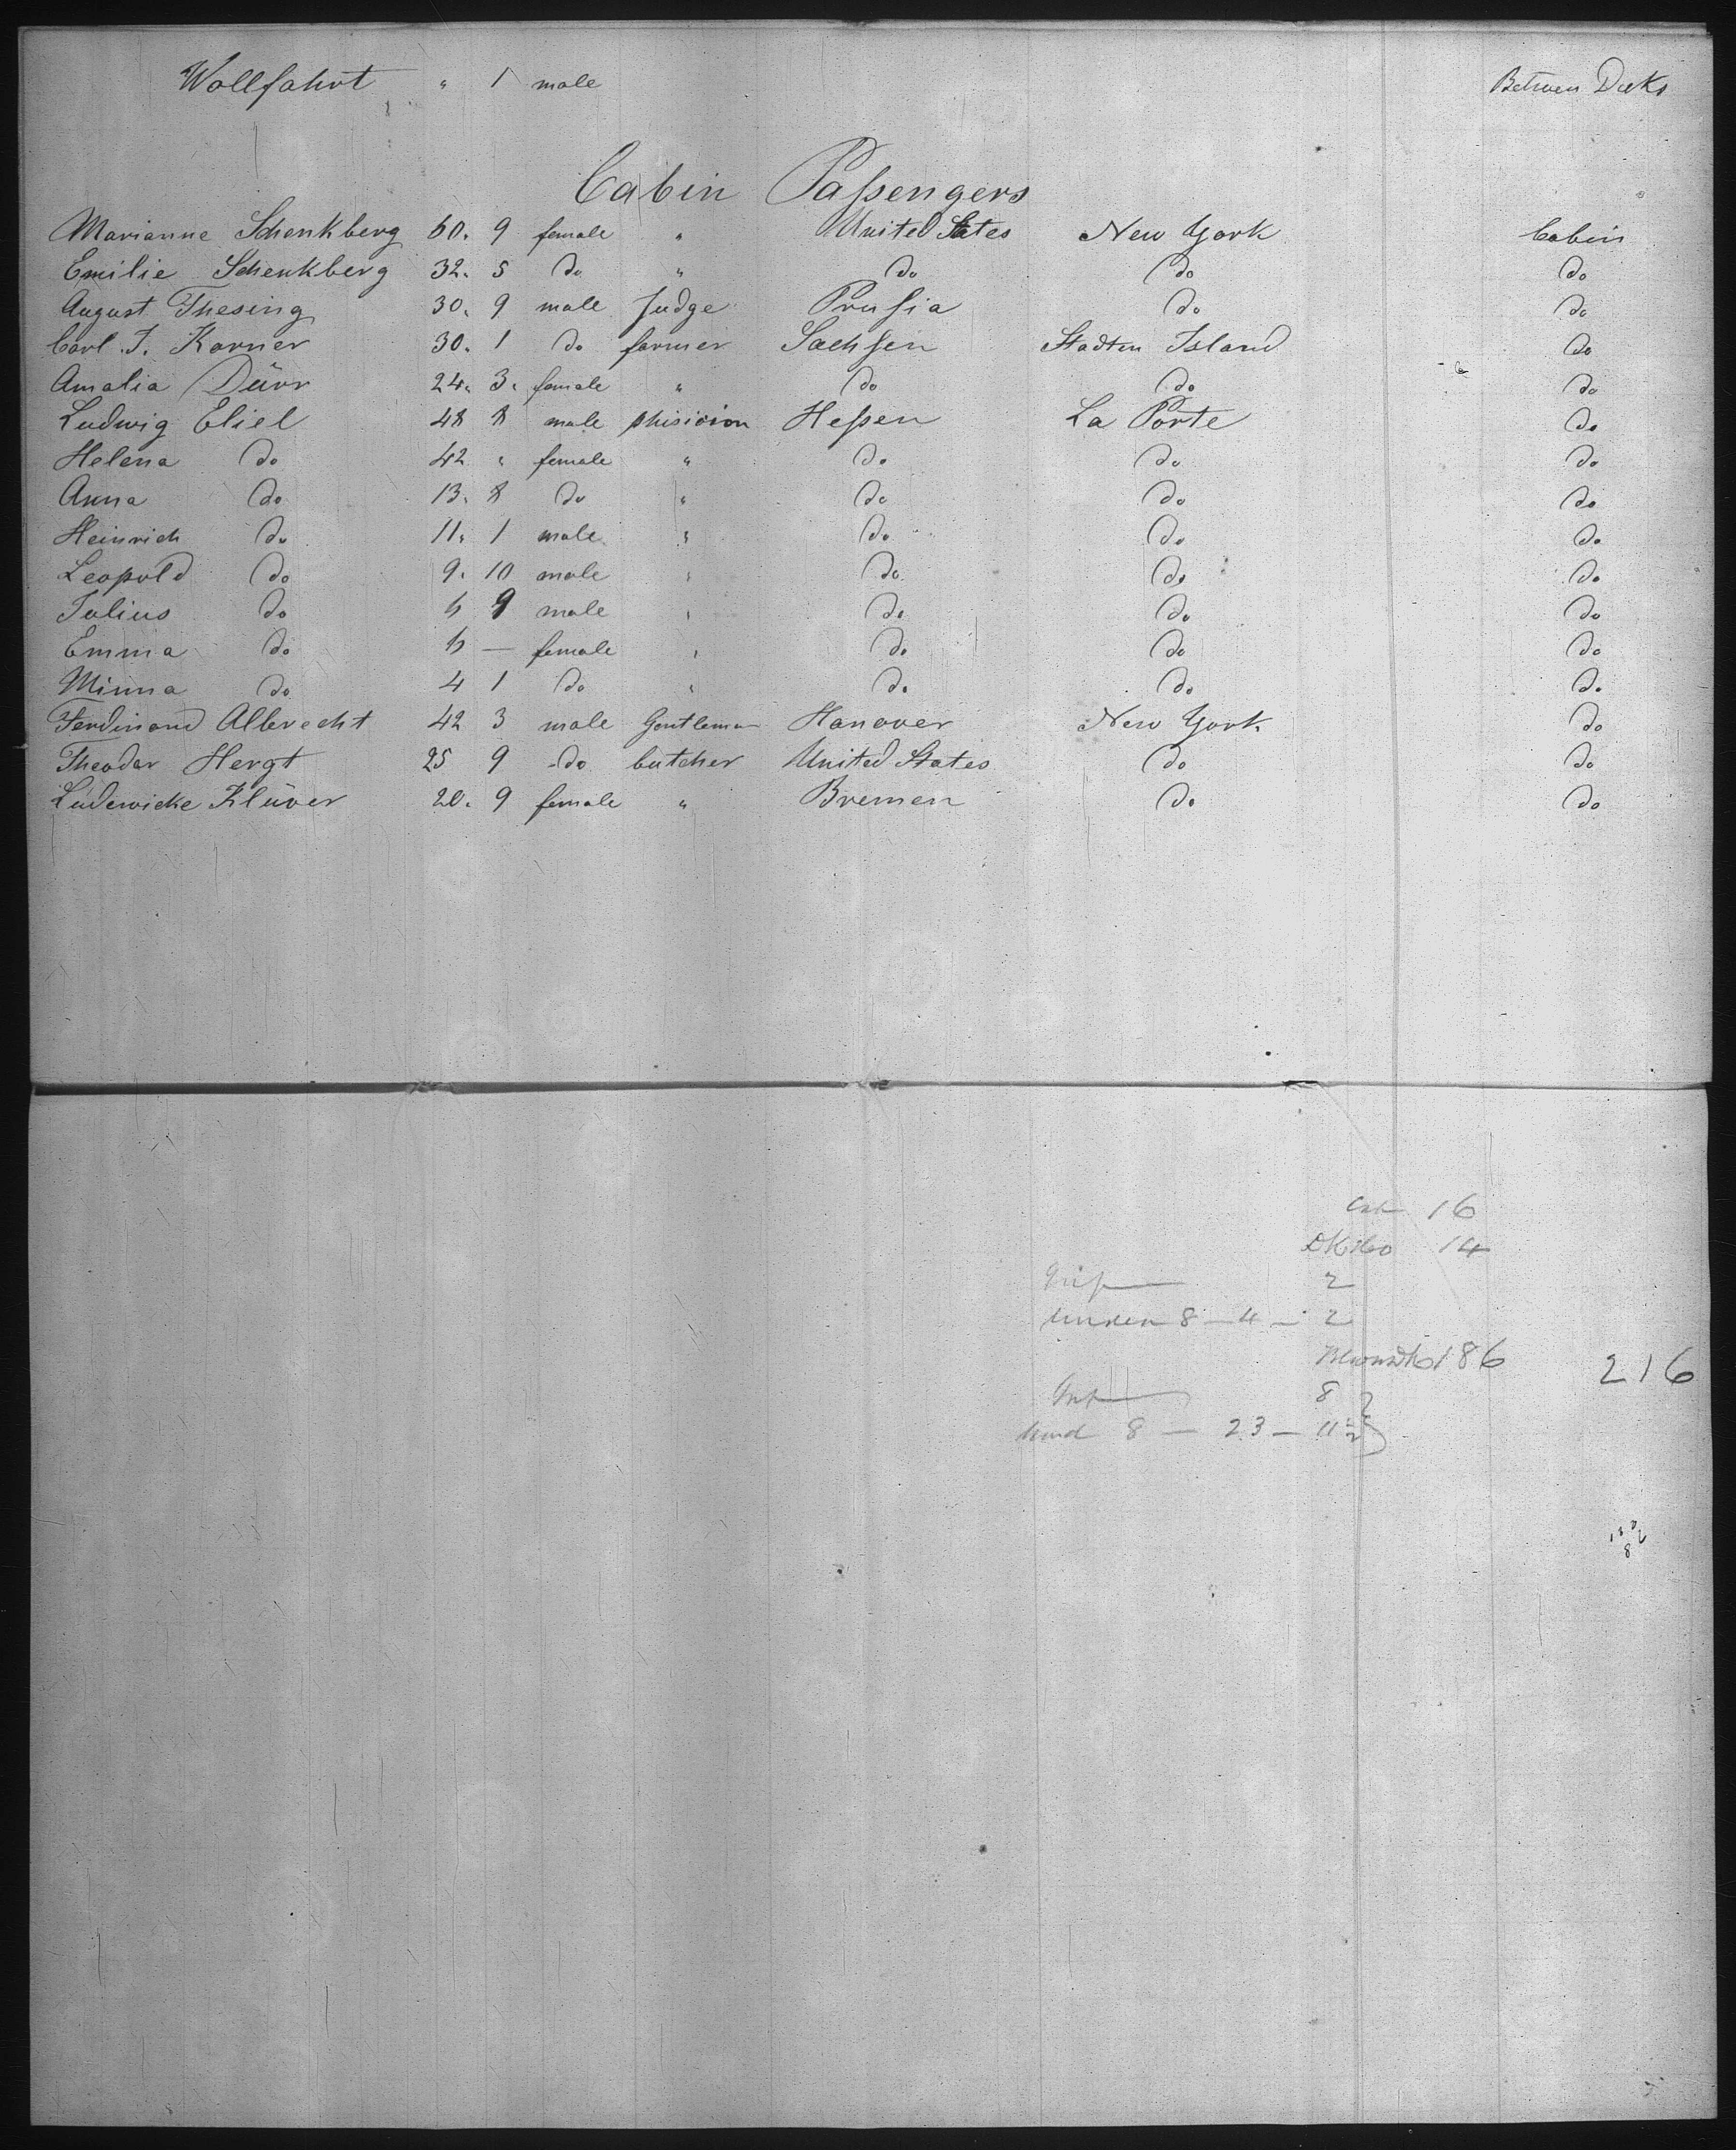 Wollfahrt " 1 male Between Decks
Cabin Passengers
Marianne Schenkberg 60. 9 female " United States New York Cabin
Emilie Schenkberg 32. 5 do " do do do
August Thesing 30. 9 male Judge Prussia do do
Carl J. Korner 30. 1 do farmer Sachsen Stadten Island do
Amalia Dürr 24. 3. female " do do do
Ludwig Eliel 48 8 male phisicion Hessen La Porte do
Helena do 42 " female " do do do
Anna do 13. 8 do " do do do
Heinrich do 11. 1 male " do do do
Leopold do 9. 10 male " do do do
Julius do 6 9 male " do do do
Emma do 6 — female " do do do
Minna do 4 1 do " do do do
Ferdinand Albrecht 42 3 male Gentleman Hanover New York do
Theodor Hergt 25 9 do butcher United States do do
Ludewicke Klüver 20. 9 female " Bremen do do
16
14
2
under 8 — 4 — 2
186 216
8
8 — 23 — 11 1/2
8